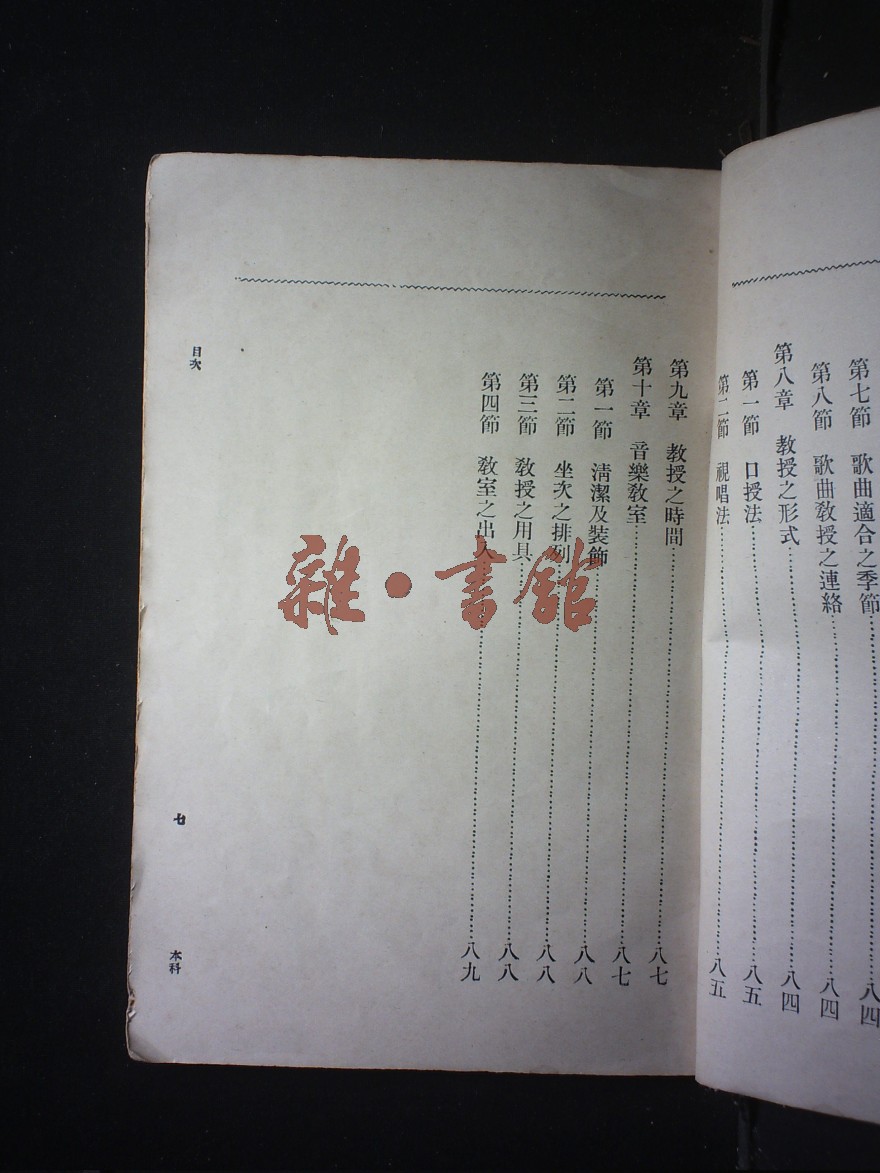 第七節　歌曲適合之季節……八四
第八節　歌曲教授之連絡……八四
第八章　教授之形式……八四
第一節　口授法……八五
第二節　視唱法……八五
第九章　教授之時間……八七
第十章　音樂教室……八七
第一節　淸潔及裝飾……八八
第二節　坐次之排列……八八
第三節　教授之用具……八八
第四節　教室之出入……八九
目次
七
本科
雜·書館